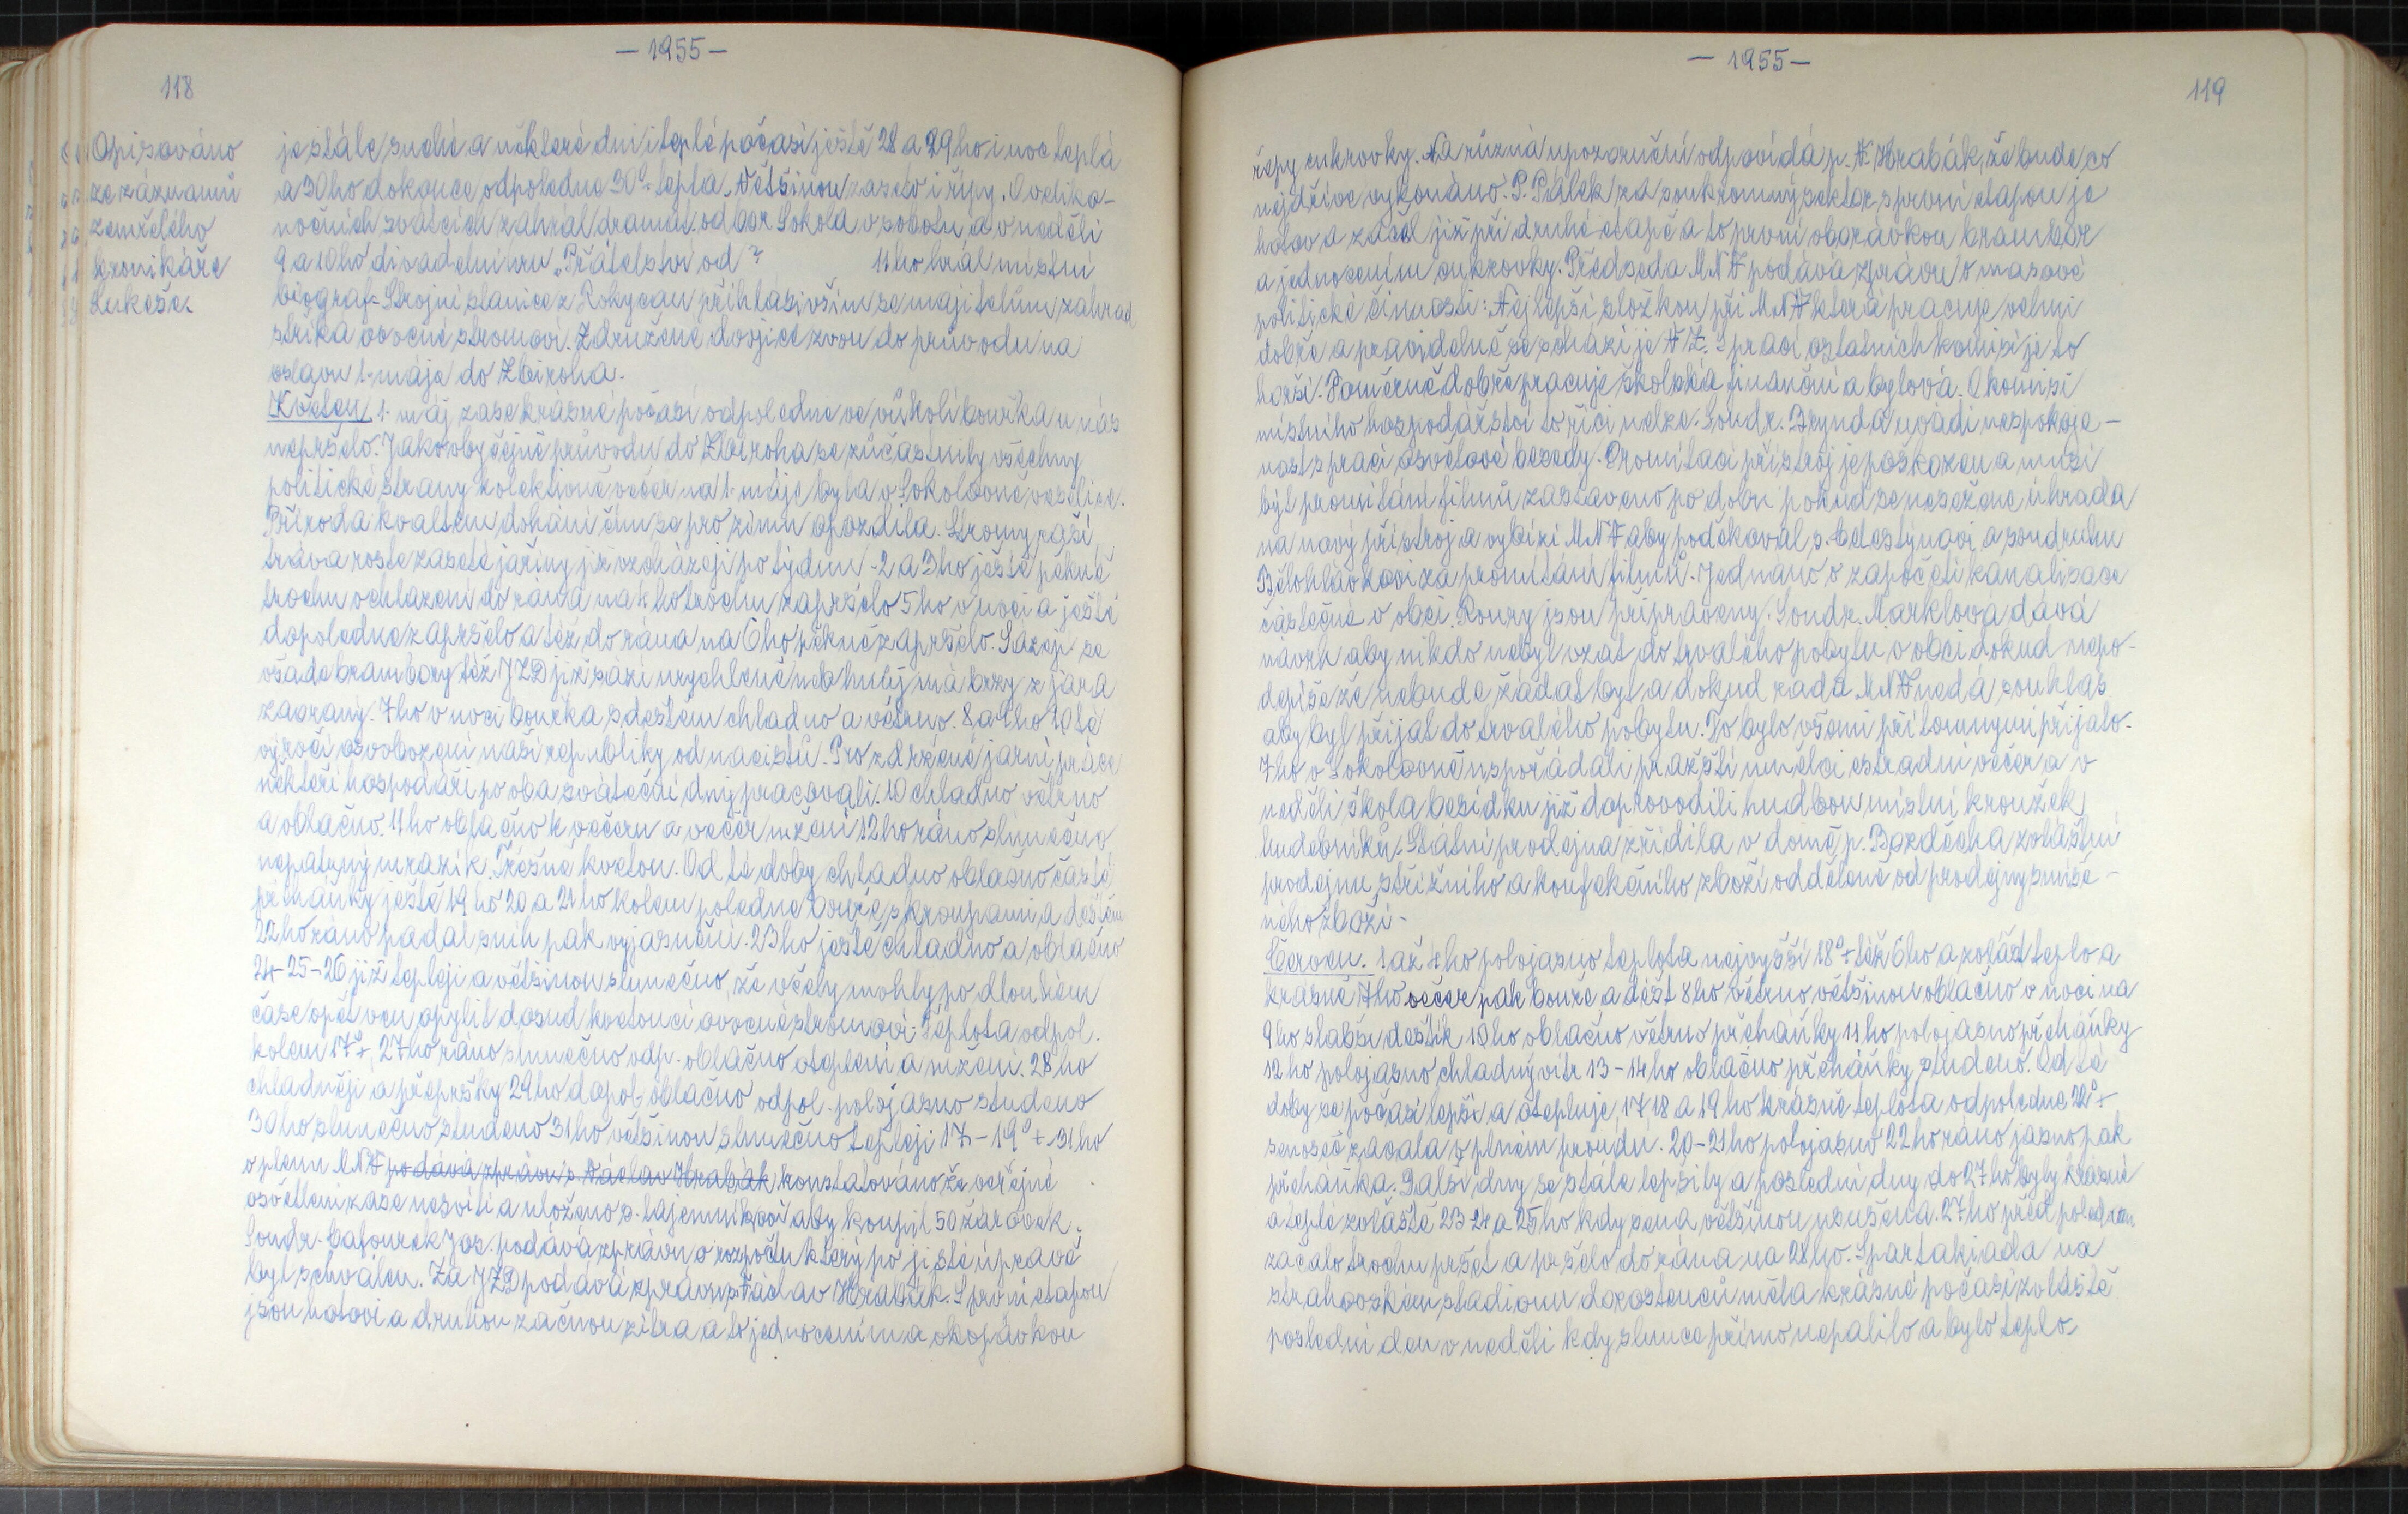 — 1955 —
118
Opisováno
ze záznamů
zemřelého
kronikáře
Lukeše.
je stále suché a některé dni i teplé počasí ještě 28 a 29ho i noc teplá
a 30ho dokonce odpoledne 30° tepla. Většinou zaseto i řepy. O veliko-
nočních svátcích zahrál dramat. odbor Sokola v sobotu a v neděli
9 a 10ho divadelní hru „Přátelství od ? 11ho hrál místní
biograf. Strojní stanice z Rokycan přihlásivším se majitelům zahrad
stříká ovocné stromoví. Združené dvojice zvou do průvodu na
oslavu 1. máje do Zbiroha.
Květen. 1. máj zase krásné počasí odpoledne ve vůkolí bouřka u nás
nepršelo. Jako obyčejně průvodu do Zbiroha se zúčastnily všechny
politické strany kolektivně večer na 1. máje byla v Sokolovně veselice.
Příroda kvaltem dohání čím se pro zimu opozdila. Stromy raší,
tráva roste zaseté jařiny již vzcházejí po týdnu. 2 a 3ho ještě pěkně
trochu ochlazení do rána na 4ho trochu zapršelo 5ho v noci a ještě
dopoledne zapršelo a též do rána na 6ho pěkně zapršelo. Sázejí se
všade brambory též JZD již sází urychleně neb hnůj má brzy z jara
zaoraný. 7ho v noci bouřka s deštěm chladno a větrno. 8 a 9ho 10té
výročí osvobození naší republiky od nacistů. Pro zdržené jarní práce
někteří hospodáři po oba sváteční dny pracovali. 10 chladno větrno
a oblačno. 11ho oblačno k večeru a večer mžení 12ho ráno slunečno
nepatrný mrazík. Třešně kvetou. Od té doby chladno oblačno časté
přeháňky ještě 19ho 20 a 21ho kolem poledne bouře s kroupami a deštěm
22ho ráno padal sníh pak vyjasnění. 23ho ještě chladno a oblačno
24-25-26 již tepleji a většinou slunečno, že včely mohly po dlouhém
čase opět ven opylit dosud kvetoucí ovocné stromoví. Teplota odpol.
kolem 17°+, 27ho ráno slunečno odp. oblačno oteplení a mžení. 28ho
chladněji a přepršky 29ho dopol. oblačno odpol. polojasno studeno
30ho slunečno studeno 31ho většinou slunečno tepleji 17-19°+. 31ho
v plenu MNV podává zprávu s. Václav Hrabák konstatováno že veřejné
osvětlení zase nesvítí a uloženo s. tajemníkovi aby koupil 50 žárovek.
Soudr. Cafourek Jos. podává zprávu o rozpočtu který po jisté úpravě
byl schválen. Za JZD podává zprávu s. Václav Hrabák. S první etapou
jsou hotovi a druhou začnou zítra a to jednocením a okopávkou
— 1955 —
119
řepy cukrovky. Na různá upozornění odpovídá p. V. Hrabák, že bude co
nejdříve vykonáno. P. Pálek za soukromný sektor s první etapou je
hotov a začal již při druhé etapě a to první oborávkou brambor
a jednocením cukrovky. Předseda MNV podává zprávu o masově
politické činnosti: Nejlepší složkou při MNV která pracuje velmi
dobře a pravidelně se schází je VŽ. S prací ostatních komisí je to
horší. Poměrně dobře pracuje školská finanční a bytová. O komisi
místního hospodářství to říci nelze. Soudr. Brynda uvádí nespokoje-
nost s prací osvětové besedy. Promítací přístroj je poškozen a musí
být promítání filmů zastaveno po dobu pokud se nesežene úhrada
na nový přístroj a vybízí MNV aby poděkoval s. Celestýnovi a soudruhu
Bělohlávkovi za promítání filmů. Jednáno o započetí kanalisace
částečně v obci. Roury jsou připraveny. Soudr. Marklová dává
návrh aby nikdo nebyl vzat do trvalého pobytu v obci dokud nepo-
depíše že nebude žádat byt a dokud rada MNV nedá souhlas
aby byl přijat do trvalého pobytu. To bylo všemi přítomnými přijato.
7ho v Sokolovně uspořádali pražští umělci estradní večer a v
neděli škola besídku již doprovodili hudbou místní kroužek
hudebníků. Státní prodejna zřídila v domě p. Bozděcha zvláštní
prodejnu střižního a konfekčního zboží odděleně od prodejny smíše-
ného zboží.
Červen. 1 až 4ho polojasno teplota nejvyšší 18°+ též 6ho a zvlášt teplo a
krásně 7ho večer pak bouře a déšť 8ho větrno většinou oblačno v noci na
9ho slabší deštík 10ho oblačno větrno přeháňky 11ho polojasno přeháňky
12ho polojasno chladný vítr 13-14ho oblačno přeháňky studeno. Od té
doby se počasí lepší a otepluje, 17, 18 a 19ho krásně teplota odpoledne 22°+
senoseč zavala v plném proudu. 20-21ho polojasno 22ho ráno jasno pak
přeháňka. Další dny se stále lepšily a poslední dny do 27ho byly krásné
a teplé zvláště 23-24 a 25ho kdy sena většinou usušena. 27ho před poledнem
začalo trochu pršet a pršelo do rána na 28ho. Spartakiáda na
strahovském stadionu dorostenců měla krásné počasí zvláště
poslední den v neděli kdy slunce přímo nepálilo a bylo teplo.